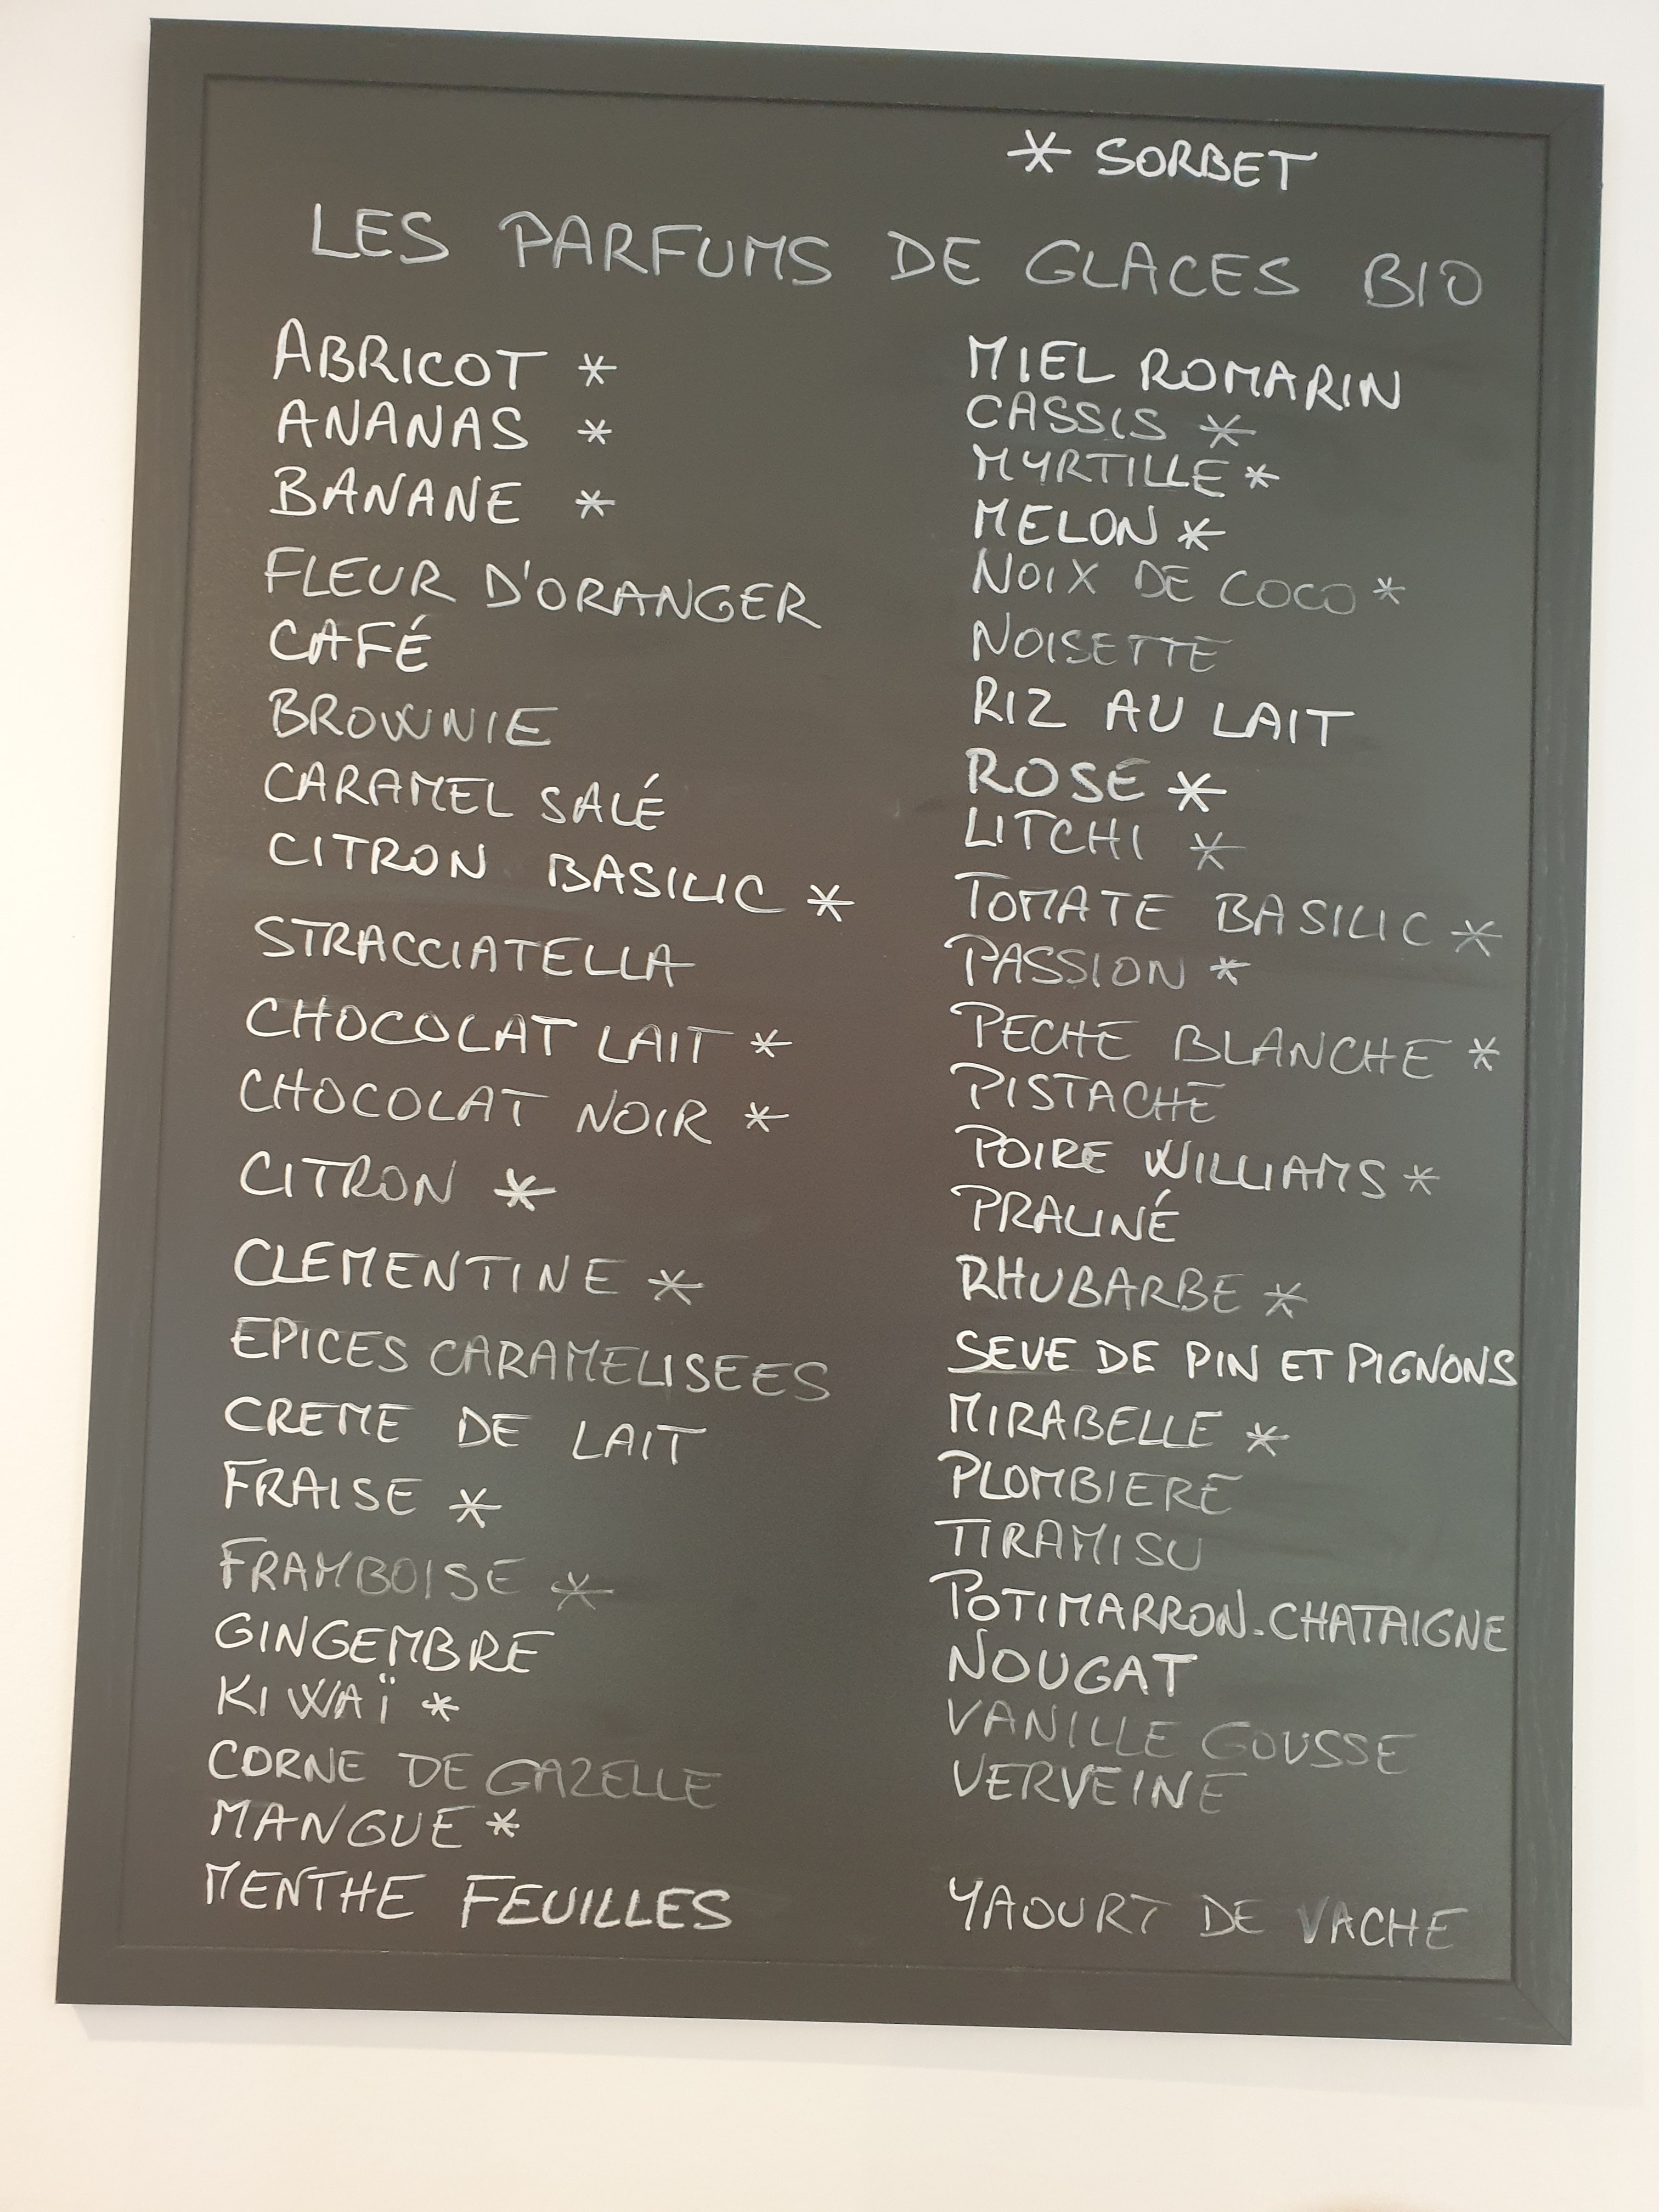 * SORBET
LES PARFUMS DE GLACES BIO
ABRICOT *
ANANAS *
BANANE *
FLEUR D'ORANGER
CAFÉ
BROWNIE
CARAMEL SALÉ
CITRON BASILIC *
STRACCIATELLA
CHOCOLAT LAIT *
CHOCOLAT NOIR *
CITRON *
CLEMENTINE *
EPICES CARAMELISEES
CREME DE LAIT
FRAISE *
FRAMBOISE *
GINGEMBRE
KIWAÏ *
CORNE DE GAZELLE
MANGUE *
MENTHE FEUILLES
MIEL ROMARIN
CASSIS *
MYRTILLE *
MELON *
NOIX DE COCO *
NOISETTE
RIZ AU LAIT
ROSE *
LITCHI *
TOMATE BASILIC *
PASSION *
PECHE BLANCHE *
PISTACHE
POIRE WILLIAMS *
PRALINÉ
RHUBARBE *
SEVE DE PIN ET PIGNONS
MIRABELLE *
PLOMBIERE
TIRAMISU
POTIMARRON-CHATAIGNE
NOUGAT
VANILLE GOUSSE
VERVEINE
YAOURT DE VACHE